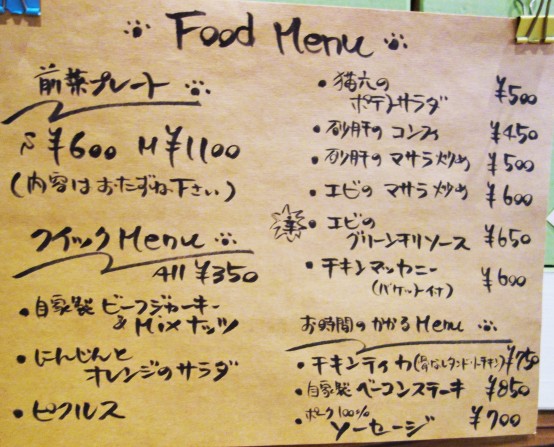 Food Menu
前菜プレート
S ¥600 M ¥1100
(内容はおたずね下さい)
クイックMenu
All ¥350
・自家製 ビーフジャーキー
& Mixナッツ
・にんじんと
オレンジのサラダ
・ピクルス
・猫六の
ポテトサラダ ¥500
・砂肝の コンフィ ¥450
・砂肝の マサラ炒め ¥500
・エビの マサラ炒め ¥600
・エビの
グリーンチリソース ¥650
・チキンマッカニー
(バケット付) ¥600
お時間のかかるMenu
・チキンティカ(骨なしタンドリーチキン) ¥750
・自家製 ベーコンステーキ ¥850
・ポーク100%
ソーセージ ¥700